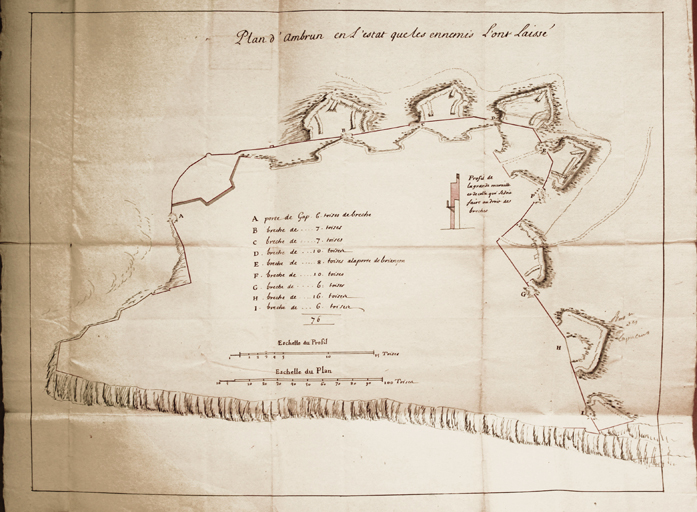 Plan d'Ambrun en L'estat que les ennemis L'ont Laissé
Profil de
la grande muraille
et de celle qui
faire au droit des
breches
A porte de Gap 6. toises de breche
B breche de ..... 7. toises
C breche de ..... 7. toises
D . breche de .... 10 toises
E . breche de .... 8. toises a la porte de briançon
F . breche de .... 10. toises
G . breche de ..... 6. toises
H . breche de .... 16 toises
I . breche de ..... 6. toises
76
Eschelle du Profil
1 2 3 4 5 10 15 Toises
Eschelle du Plan
10 20 30 40 50 60 70 80 90 100 Toises
A
B
F
G
H
I